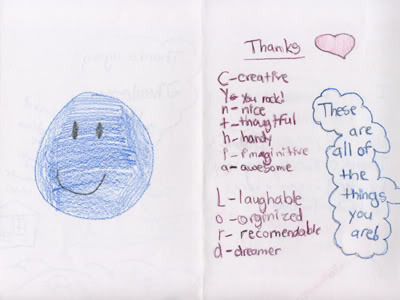 Thanks
C-creative
Y-You rock!
n-nice
t-thaugtful
h-handy
i-imaginitive
a-awesome
L-laughable
o-orginized
r-recomendable
d-dreamer
These
are
all of
the
things
you
are!